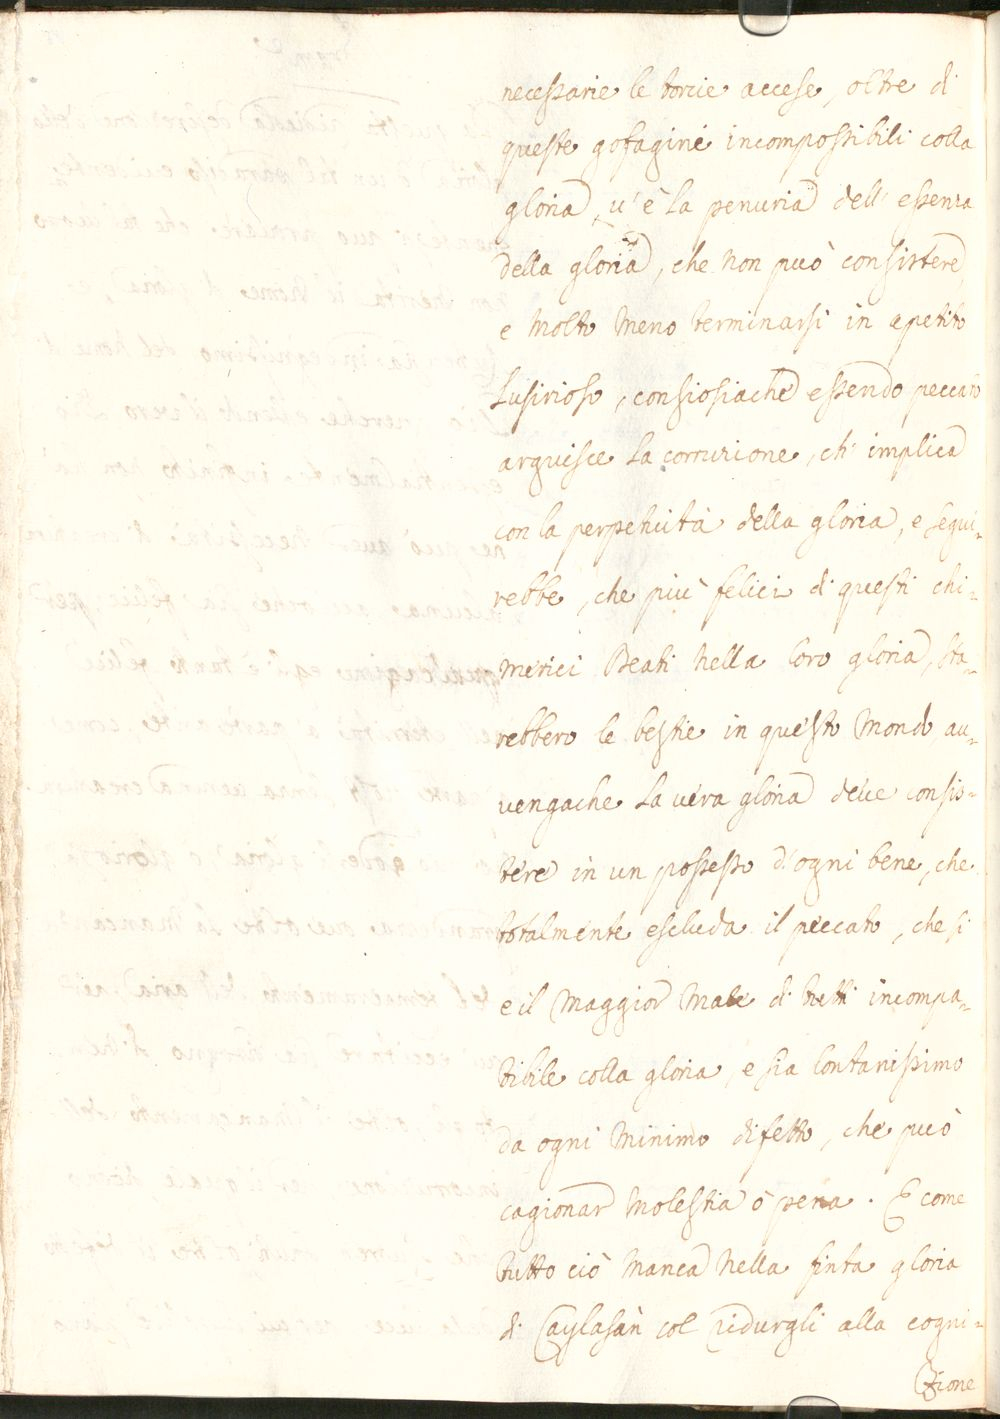 necessarie le torcie accese, oltre di
queste gofagini incompossibili colla
gloria, u' è la penuria dell' essenza
della gloria, che non può consistere,
e molto meno terminarsi in apetito
lusirioso, consiosiache essendo peccato
arguisce la corruzione, ch' implica
con la perpetuità della gloria, e segui-
rebbe, che più felici di questi chi-
merici Beati nella loro gloria, sta-
rebbero le bestie in questo mondo, au-
vengache la vera gloria deve consis-
tere in un possesso d' ogni bene, che
totalmente escluda il peccato, che si
e il maggior male di tutti incompa-
tibile colla gloria, e sia lontanissimo
da ogni minimo difetto, che può
cagionar molestia ò pena. E come
tutto ciò manca nella finta gloria
di Caylasàn col ridurgli alla cogni-
zione